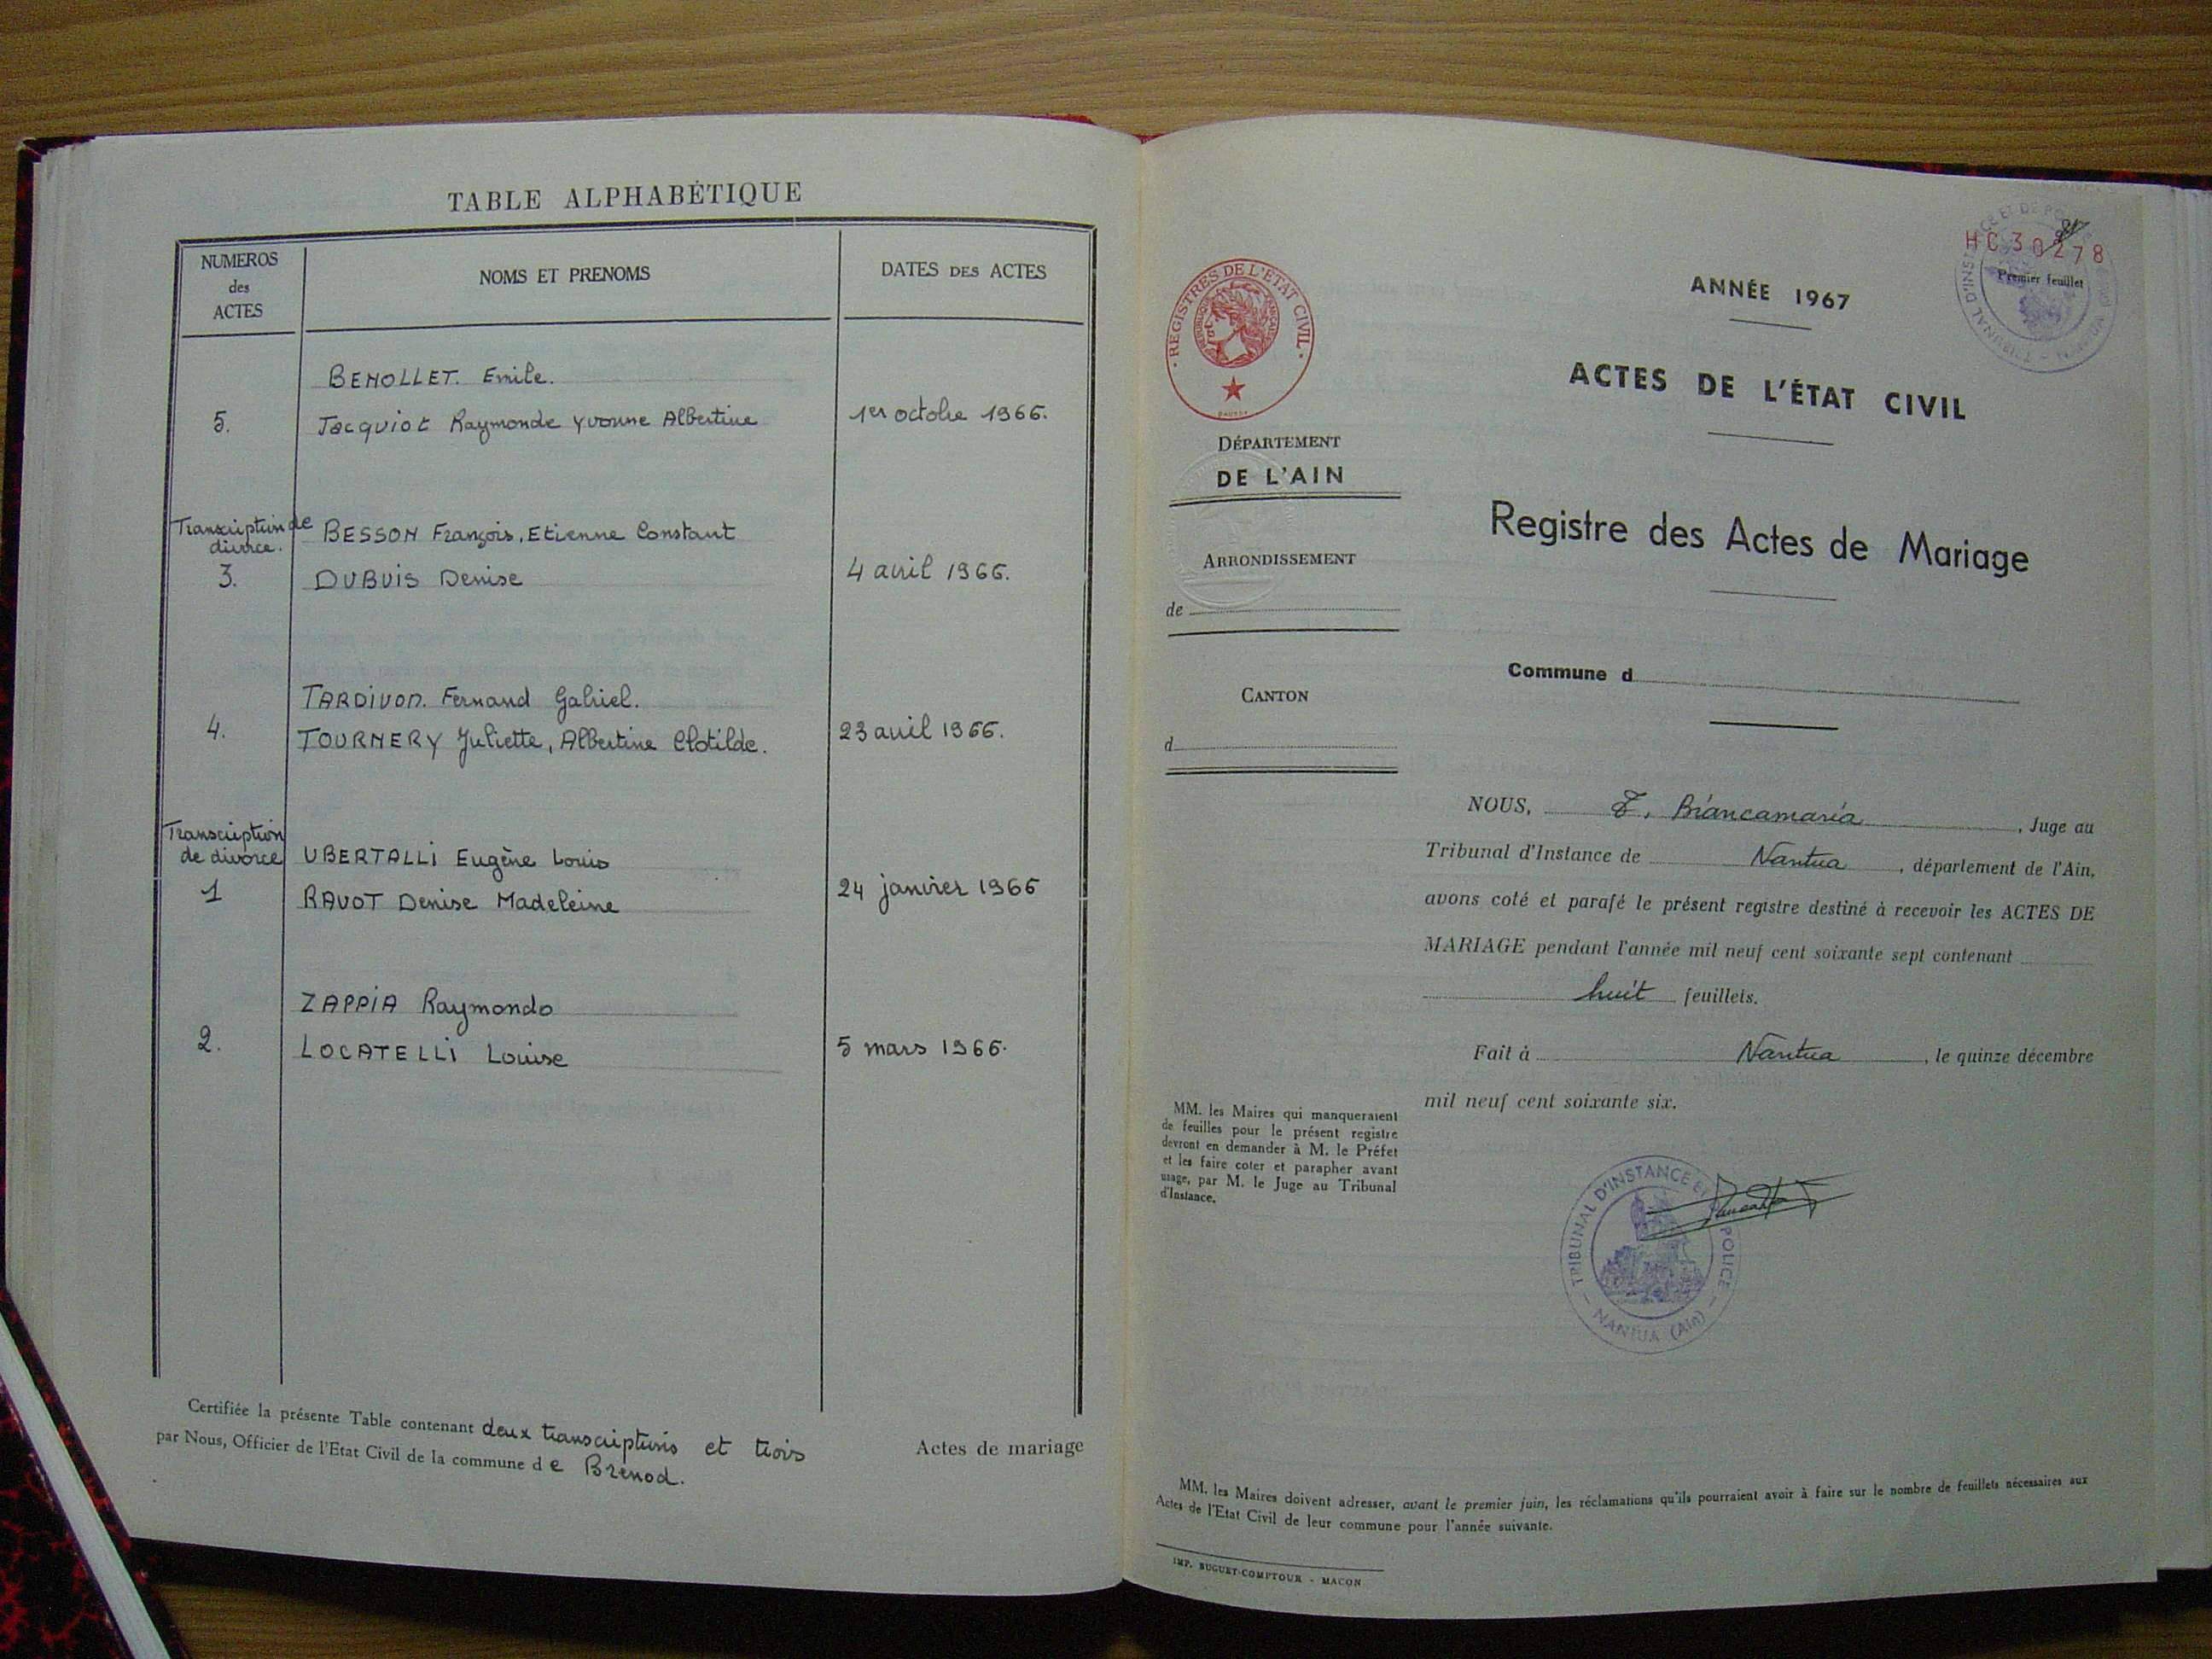 TABLE ALPHABÉTIQUE
NUMEROS
des
ACTES
NOMS ET PRENOMS
DATES DES ACTES
BENOLLET. Emile.
5. Jacquiot Raymonde Yvonne Albertine 1er octobre 1966.
Transcription de
divorce.
BESSON François, Etienne Constant
3. DUBUIS Denise 4 avril 1966.
TARDIVON. Fernand Gabriel.
4. TOURNERY Juliette, Albertine Clotilde. 23 avril 1966.
Transcription
de divorce UBERTALLI Eugène Louis
1 RAVOT Denise Madeleine 24 janvier 1966
ZAPPIA Raymondo
2. LOCATELLI Louise 5 mars 1966.
Certifiée la présente Table contenant deux transcriptions et trois Actes de mariage
par Nous, Officier de l'Etat Civil de la commune de Brenod.
HC30278
Premier feuillet
REGISTRES DE L'ÉTAT CIVIL
RÉPUBLIQUE FRANÇAISE
ANNÉE 1967
ACTES DE L'ÉTAT CIVIL
DÉPARTEMENT
DE L'AIN
Registre des Actes de Mariage
ARRONDISSEMENT
de
Commune d
CANTON
d
NOUS, Biancamaria, Juge au
Tribunal d'Instance de Nantua, département de l'Ain,
avons coté et parafé le présent registre destiné à recevoir les ACTES DE
MARIAGE pendant l'année mil neuf cent soixante sept contenant
huit feuillets.
Fait à Nantua, le quinze décembre
mil neuf cent soixante six.
MM. les Maires qui manqueraient
de feuilles pour le présent registre
devront en demander à M. le Préfet
et les faire coter et parapher avant
usage, par M. le Juge au Tribunal
d'Instance.
TRIBUNAL D'INSTANCE ET POLICE
NANTUA (Ain)
MM. les Maires doivent adresser, avant le premier juin, les réclamations qu'ils pourraient avoir à faire sur le nombre de feuillets nécessaires aux
Actes de l'Etat Civil de leur commune pour l'année suivante.
IMP. BUGUET-COMPTOUR - MACON